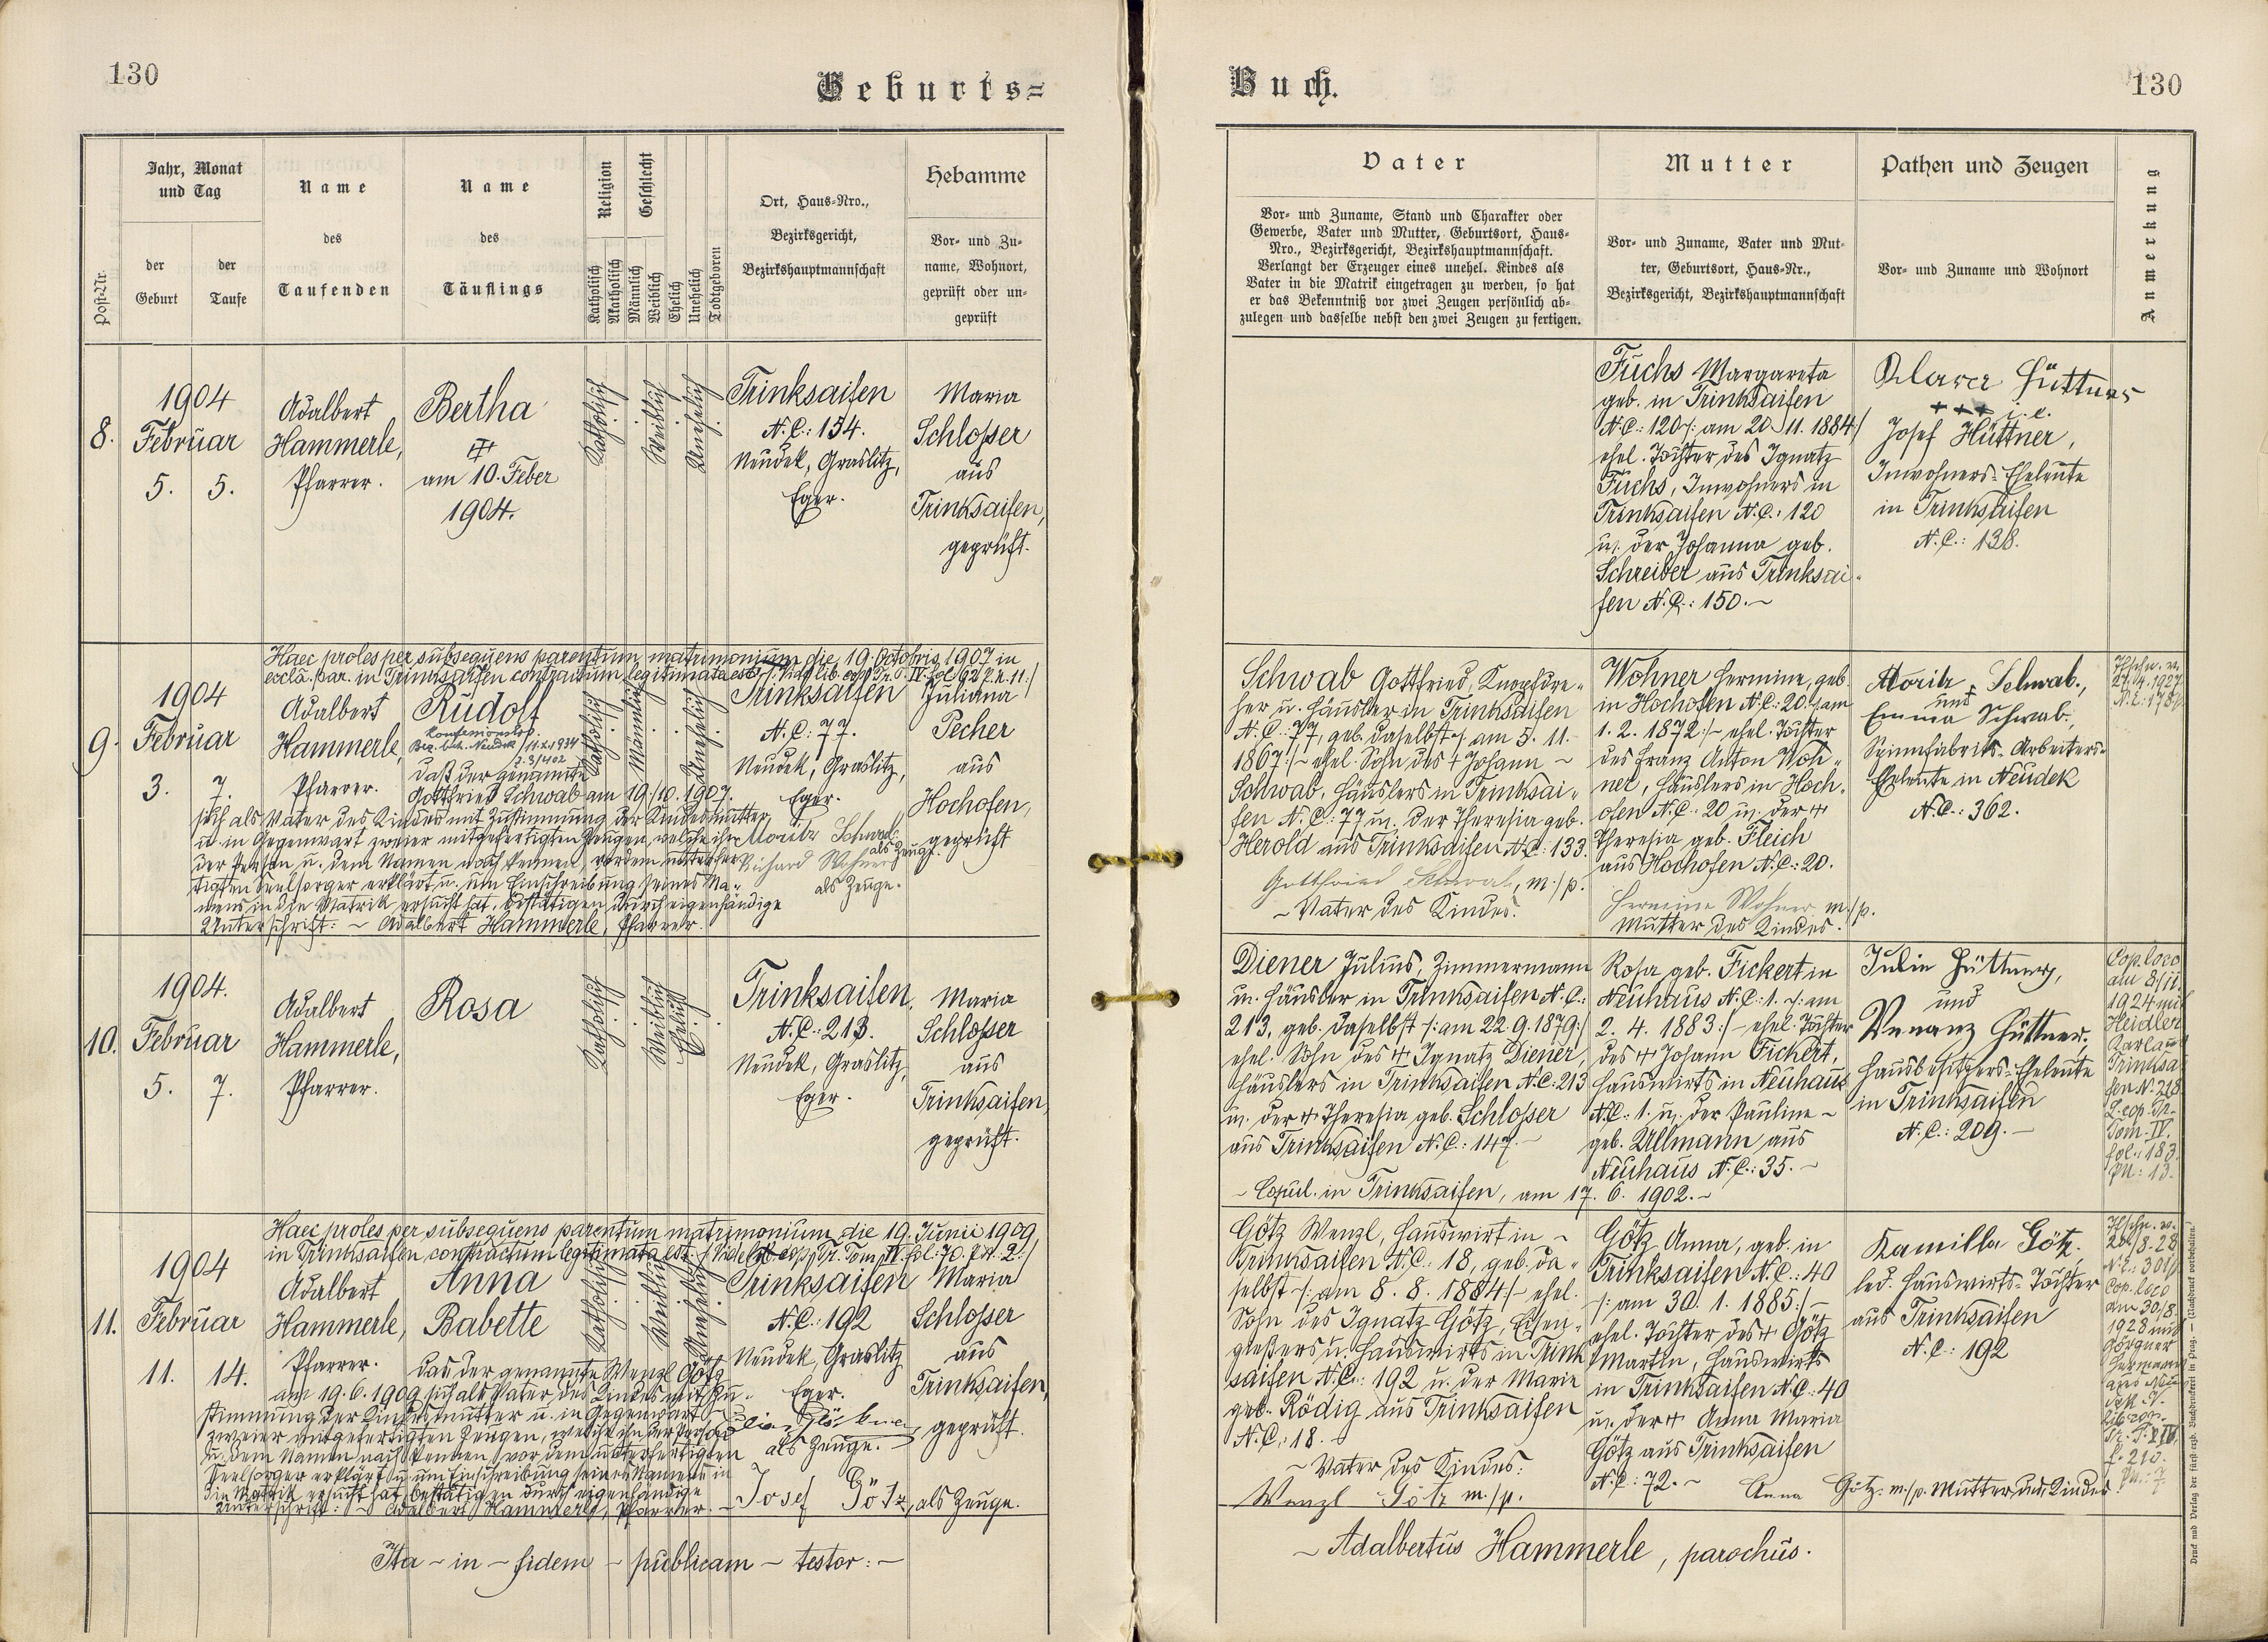 130
Geburts=
Jahr, Monat
und Tag
Name
Name
Religion
Geschlecht
Hebamme
Post-Nr.
der
Geburt
der
Taufe
des
Taufenden
des
Täuflings
Katholisch
Akatholisch
Männlich
Weiblich
Ehelich
Unehelich
Todtgeboren
Ort, Haus=Nro.,
Bezirksgericht,
Bezirkshauptmannschaft
Vor= und Zu=
name, Wohnort,
geprüft oder un=
geprüft
8.
1904
Februar
5. 5.
Adalbert
Hammerle,
Pfarrer.
Bertha
am 10. Feber
1904.
Katholisch
Weiblich
Unehelich
Trinksaifen
N.C.: 154.
Neudek, Graslitz,
Eger.
Maria
Schlosser
aus
Trinksaifen,
geprüft.
Haec proles per subsequens parentum matrimonium die 19. Octobris 1907 in
eccla. par. in Trinksaifen contractum legitimata est.
9.
1904
Februar
3. 7.
Adalbert
Hammerle,
Pfarrer.
Rudolf
konfessionslos.
Bez. beh. Neudek
Katholisch
Männlich
Unehelich
Trinksaifen
N.C.: 77.
Neudek, Graslitz,
Eger.
Juliana
Pecher
aus
Hochofen,
geprüft
daß der genannte
Gottfried Schwab am 19./10. 1907.
sich als Vater des Kindes mit Zustimmung der Kindesmutter
u. in Gegenwart zweier mitgefertigten Zeugen, welche ihn
der Person u. dem Namen nach kennen, vor dem unterfer
tigten Seelsorger erklärt u. um Einschreibung seines Na=
mens in die Matrik ersucht hat, bestätigen durch eigenhändige
Unterschrift: ~ Adalbert Hammerle, Pfarrer.
Moritz Schwab
als Zeuge.
Richard Wohner
als Zeuge.
10.
1904.
Februar
5. 7.
Adalbert
Hammerle,
Pfarrer.
Rosa
Katholisch
Weiblich
Ehelich
Trinksaifen
N.C.: 213.
Neudek, Graslitz,
Eger.
Maria
Schlosser
aus
Trinksaifen,
geprüft.
Haec proles per subsequens parentum matrimonium die 19. Junii 1909
in Trinksaifen contractum legitimata est.
11.
1904
Februar
11. 14.
Adalbert
Hammerle,
Pfarrer.
Anna
Babette
Katholisch
Weiblich
Unehelich
Trinksaifen
N.C.: 192
Neudek, Graslitz
Eger.
Maria
Schlosser
aus
Trinksaifen,
geprüft.
Das der genannte Wenzl Götz
am 19. 6. 1909 sich als Vater des Kindes mit Zu=
stimmung der Kindesmutter u. in Gegenwart
zweier mitgefertigten Zeugen, welche ihn der Person
u. dem Namen nach kennen, vor dem unterfertigten
Seelsorger erklärt u. um Einschreibung seines Namens in
die Matrik ersucht hat, bestätigen durch eigenhändige
Unterschrift: Adalbert Hammerle, Pfarrer.
als Zeuge.
Josef Götz, als Zeuge.
Ita ~ in ~ fidem ~ publicam ~ testor: ~
Buch.
130
Vater
Mutter
Pathen und Zeugen
Anmerkung
Vor= und Zuname, Stand und Charakter oder
Gewerbe, Vater und Mutter, Geburtsort, Haus=
Nro., Bezirksgericht, Bezirkshauptmannschaft.
Verlangt der Erzeuger eines unehel. Kindes als
Vater in die Matrik eingetragen zu werden, so hat
er das Bekenntniß vor zwei Zeugen persönlich ab=
zulegen und dasselbe nebst den zwei Zeugen zu fertigen.
Vor= und Zuname, Vater und Mut=
ter, Geburtsort, Haus=Nr.,
Bezirksgericht, Bezirkshauptmannschaft
Vor= und Zuname und Wohnort
Fuchs Margareta
geb. in Trinksaifen
N.C.: 120 /: am 20. 11. 1884 :/
ehel. Tochter des Ignatz
Fuchs, Inwohners in
Trinksaifen N.C.: 120
u. der Johanna geb.
Schreiber aus Trinksai=
fen N.C.: 150. ~
Klara Hüttner
+++
Josef Hüttner,
Inwohners=Eheleute
in Trinksaifen
N.C.: 138.
Schwab Gottfried, Knopfdre=
her u. Häusler in Trinksaifen
N.C.: 77, geb. daselbst /: am 5. 11.
1867 :/ ~ ehel. Sohn des + Johann ~
Schwab, Häuslers in Trinksai=
fen N.C.: 77 u. der Theresia geb.
Herold aus Trinksaifen N.C.: 133.
Gottfried Schwab, m./p.
~ Vater des Kindes.
Wohner Hermine, geb.
in Hochofen N.C.: 20. /: am
1. 2. 1872 :/ ~ ehel. Tochter
des Franz Anton Woh=
ner, Häuslers in Hoch=
ofen N.C.: 20 u. der +
Theresia geb. Fleich
aus Hochofen N.C.: 20.
Hermine Wohner m./p.
Mutter des Kindes.
Moritz Schwab.,
und
Emma Schwab.,
Spinnfabriks=Arbeiters=
Eheleute in Neudek
N.C.: 362.
Diener Julius, Zimmermann
u. Häusler in Trinksaifen N.C.:
213, geb. daselbst /: am 22. 9. 1879 :/
ehel. Sohn des + Ignatz Diener,
Häuslers in Trinksaifen N.C.: 213
u. der + Theresia geb. Schlosser
aus Trinksaifen N.C.: 147. ~
~ Copul. in Trinksaifen, am 17. 6. 1902. ~
Rosa geb. Fickert in
Neuhaus N.C.: 1. /: am
2. 4. 1883 :/ ~ ehel. Tochter
des + Johann Fickert,
Hauswirts in Neuhaus
N.C.: 1. u. der Pauline ~
geb. Ullmann aus
Neuhaus N.C.: 35. ~
Julie Hüttner,
und
Venanz Hüttner,
Hausbesitzers=Eheleute
in Trinksaifen
N.C.: 209. ~
Cop. loco
am 8/11.
1924 mit
Heidler
Karl aus
Trinksai
fen N. 218
L. cop. Tr.
Tom. IV.
fol. 183.
pn: 13.
Götz Wenzl, Hauswirt in ~
Trinksaifen N.C.: 18, geb. da=
selbst /: am 8. 8. 1884 :/ ~ ehel.
Sohn des Ignatz Götz, Eisen=
gießers u. Hauswirts in Trink
saifen N.C.: 192 u. der Marie
geb. Rödig aus Trinksaifen
N.C.: 18.
~ Vater des Kindes:
Wenzl Götz m./p.
Götz Anna, geb. in
Trinksaifen N.C.: 40
/: am 30. 1. 1885 :/ ~
ehel. Tochter des + Götz
Martin, Hauswirts
in Trinksaifen N.C.: 40
u. der + Anna Maria
Götz aus Trinksaifen
N.C.: 72. ~
Anna Götz. m./p. Mutter des Kindes.
Kamilla Götz.
led. Hauswirts=Tochter
aus Trinksaifen
N.C.: 192
Cop. loco
am 30/8.
1928 mit
~ Adalbertus Hammerle, parochus.